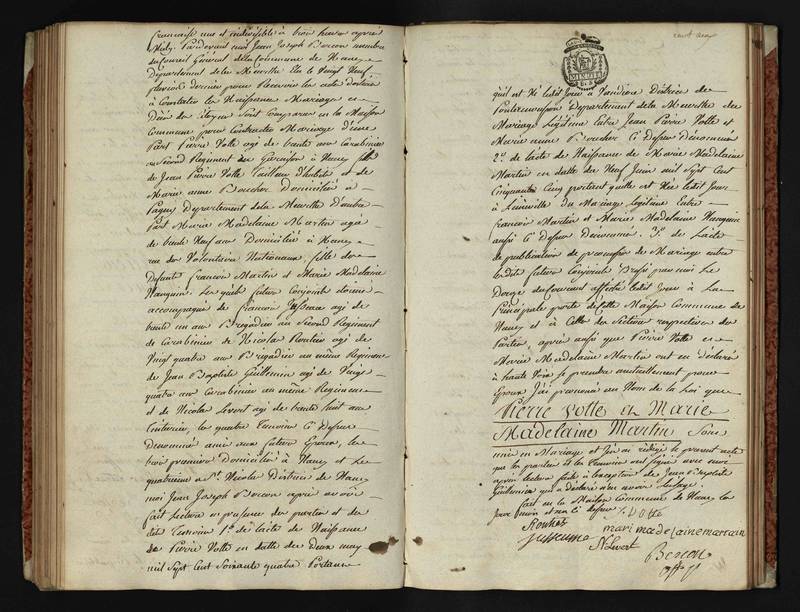 française une et indivisible à huit heures après
Midy. Pardevant moi Jean Joseph Beccon membre
du Conseil Général de la Commune de Nancy
Département de la Meurthe Elu le Vingt Neuf
dernier pour Recevoir les actes destinés
à Constater les Naissances Mariages et
Décès des citoyens sont Comparus en la Maison
Commune pour Contracter Mariage d'une
Part Pierre Votte agé de trente ans Carabinier
au Second Regiment en Garnison à Nancy fils
de Jean Pierre Votte Tailleur d'habits et de
Marie anne Boucher Domiciliés à
Pagny Departement de la Meurthe d'autre
Part Marie Madelaine Martin agée
de trente Neuf ans Domiciliée à Nancy
rue des Volontaires Nationaux, fille des
Defunts francois Martin et Marie Madelaine
Les quels futurs Conjoints étoient
accompagnés de francois Jusseaume agé de
trente un ans Brigadier au Second Regiment
de Carabiniers de Nicolas Routier agé de
Vingt quatre ans Brigadier au même Regiment
de Jean Baptiste Guillemin agé de Vingt
quatre ans Carabinier au même Regiment
et de Nicolas Levert agé de trente huit ans
Couturier, les quatre temoins Ci dessus
Denommés amis aux futurs Epoux, les
trois premiers Domiciliés à Nancy et Le
quatrieme à St. Nicolas District de Nancy
moi Jean Joseph Beccon après avoir
fait lecture en presence des parties et des
dits temoins 1° de l'acte de Naissance
de Pierre Votte en datte du deux may
mil Sept Cent Soixante quatre Portant
qu'il est Né ledit Jour à Vandiere District de
Pontamousson Departement de la Meurthe du
Mariage Légitime entre Jean Pierre Votte et
Marie anne Boucher Ci dessus Dénommés
2° de l'acte de Naissance de Marie Madelaine
Martin en datte du Neuf Juin mil Sept Cent
Cinquante Cinq portant qu'elle est Née ledit Jour
à Lunéville du Mariage Légitime Entre
francois Martin et Marie Madelaine
aussi Ci dessus Dénommés. 3° de l'acte
de publication de promesse de Mariage entre
lesdits futurs Conjoints Dressé par moi Le
Douze du Courant affiché ledit Jour à La
Principale porte de cette Maison Commune de
Nancy et à Celles des Sections respectives des
Parties, après aussi que Pierre Votte et
Marie Madelaine Martin ont eu déclaré
à haute Voix se prendre mutuellement pour
Epoux J'ai prononcé au Nom de la Loi que
Pierre Votte et Marie
Madelaine Martin Sont
unis en Mariage et J'ai rédigé le present acte
que les parties et les temoins ont signé avec moi
après lecture faite à l'exception de Jean Baptiste
Guillemin qui a déclaré n'en avoir l'usage.
fait en la Maison Commune de Nancy les
Jour mois et an ci dessus. Votte
Routier
Jusseaume
mari madelaine martain
N Levert
Beccon
off. p.